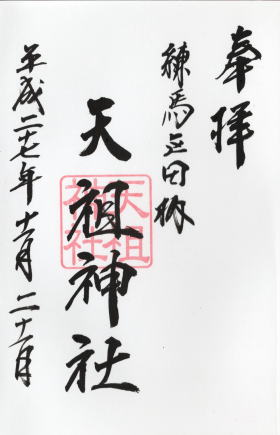 奉拝
練馬区田柄
天祖神社
天祖
神社
平成二十七年十一月二十一日